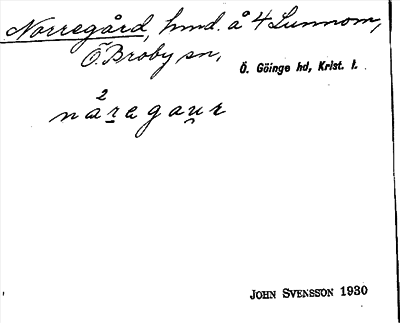 Norregård, hmd. å 4 Lunnom,
Ö. Broby sn,
Ö. Göinge hd, Krist. l.
2
nåregaur
JOHN SVENSSON 1930